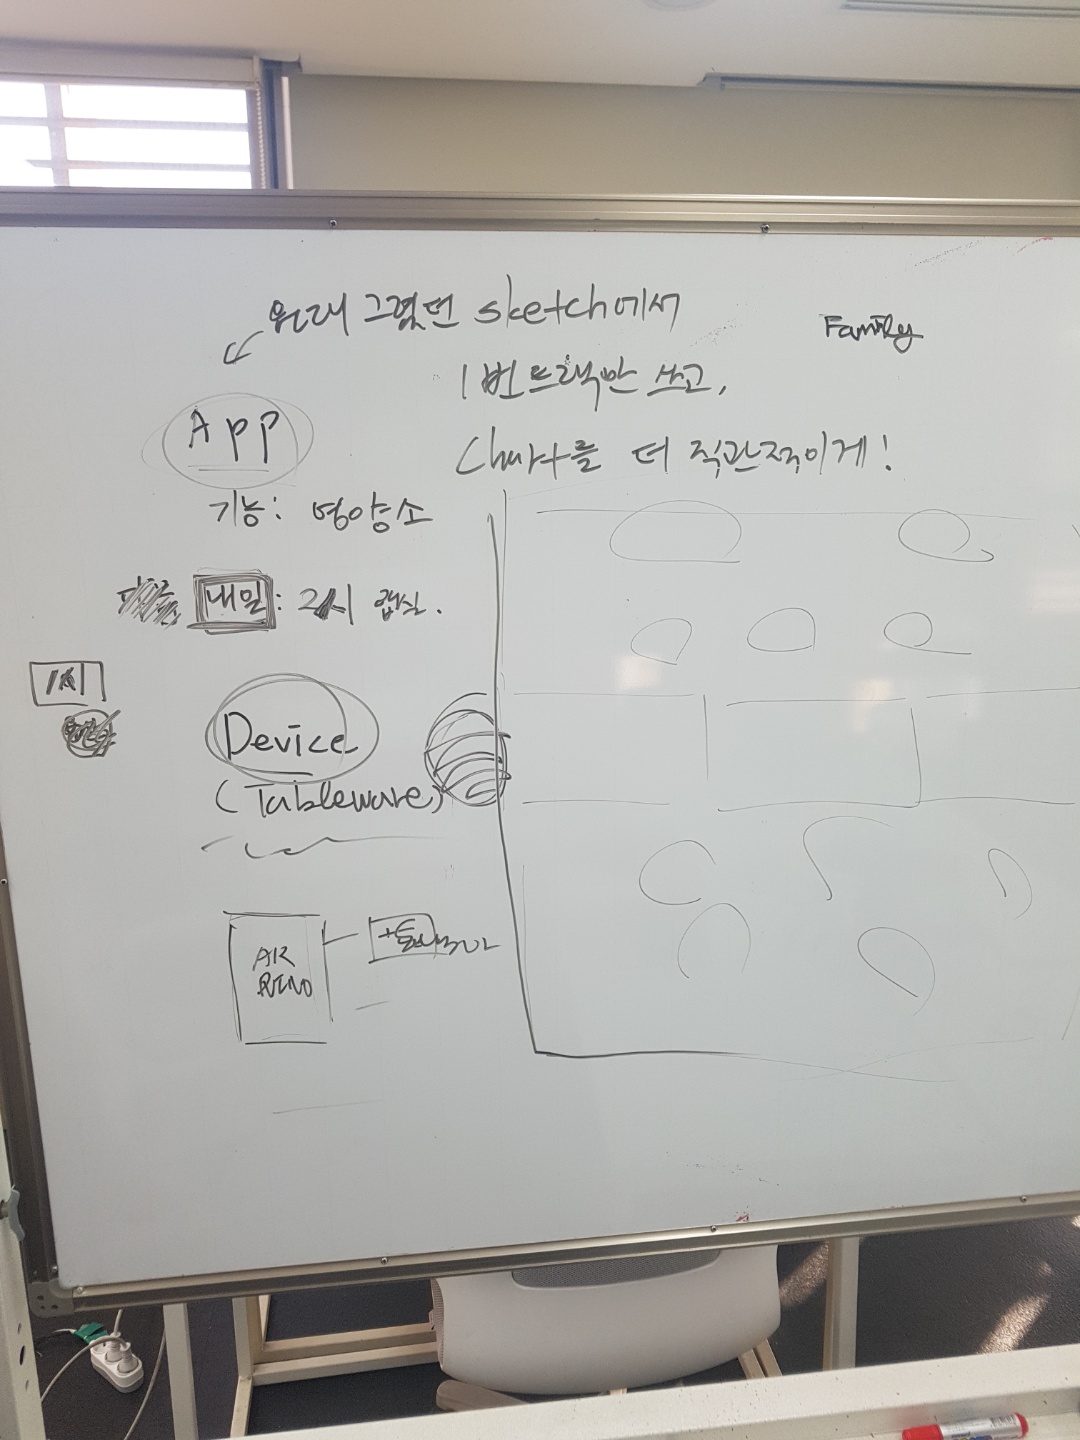 원래 그렸던 sketch에서
Family
1번 트랙만 쓰고,
Chart를 더 직관적이게!
App
기능: 영양소
내일: 2시 랩실.
1시
Device
(Tableware)
AR